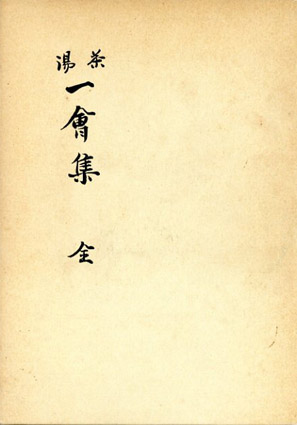 茶湯
一會集 全